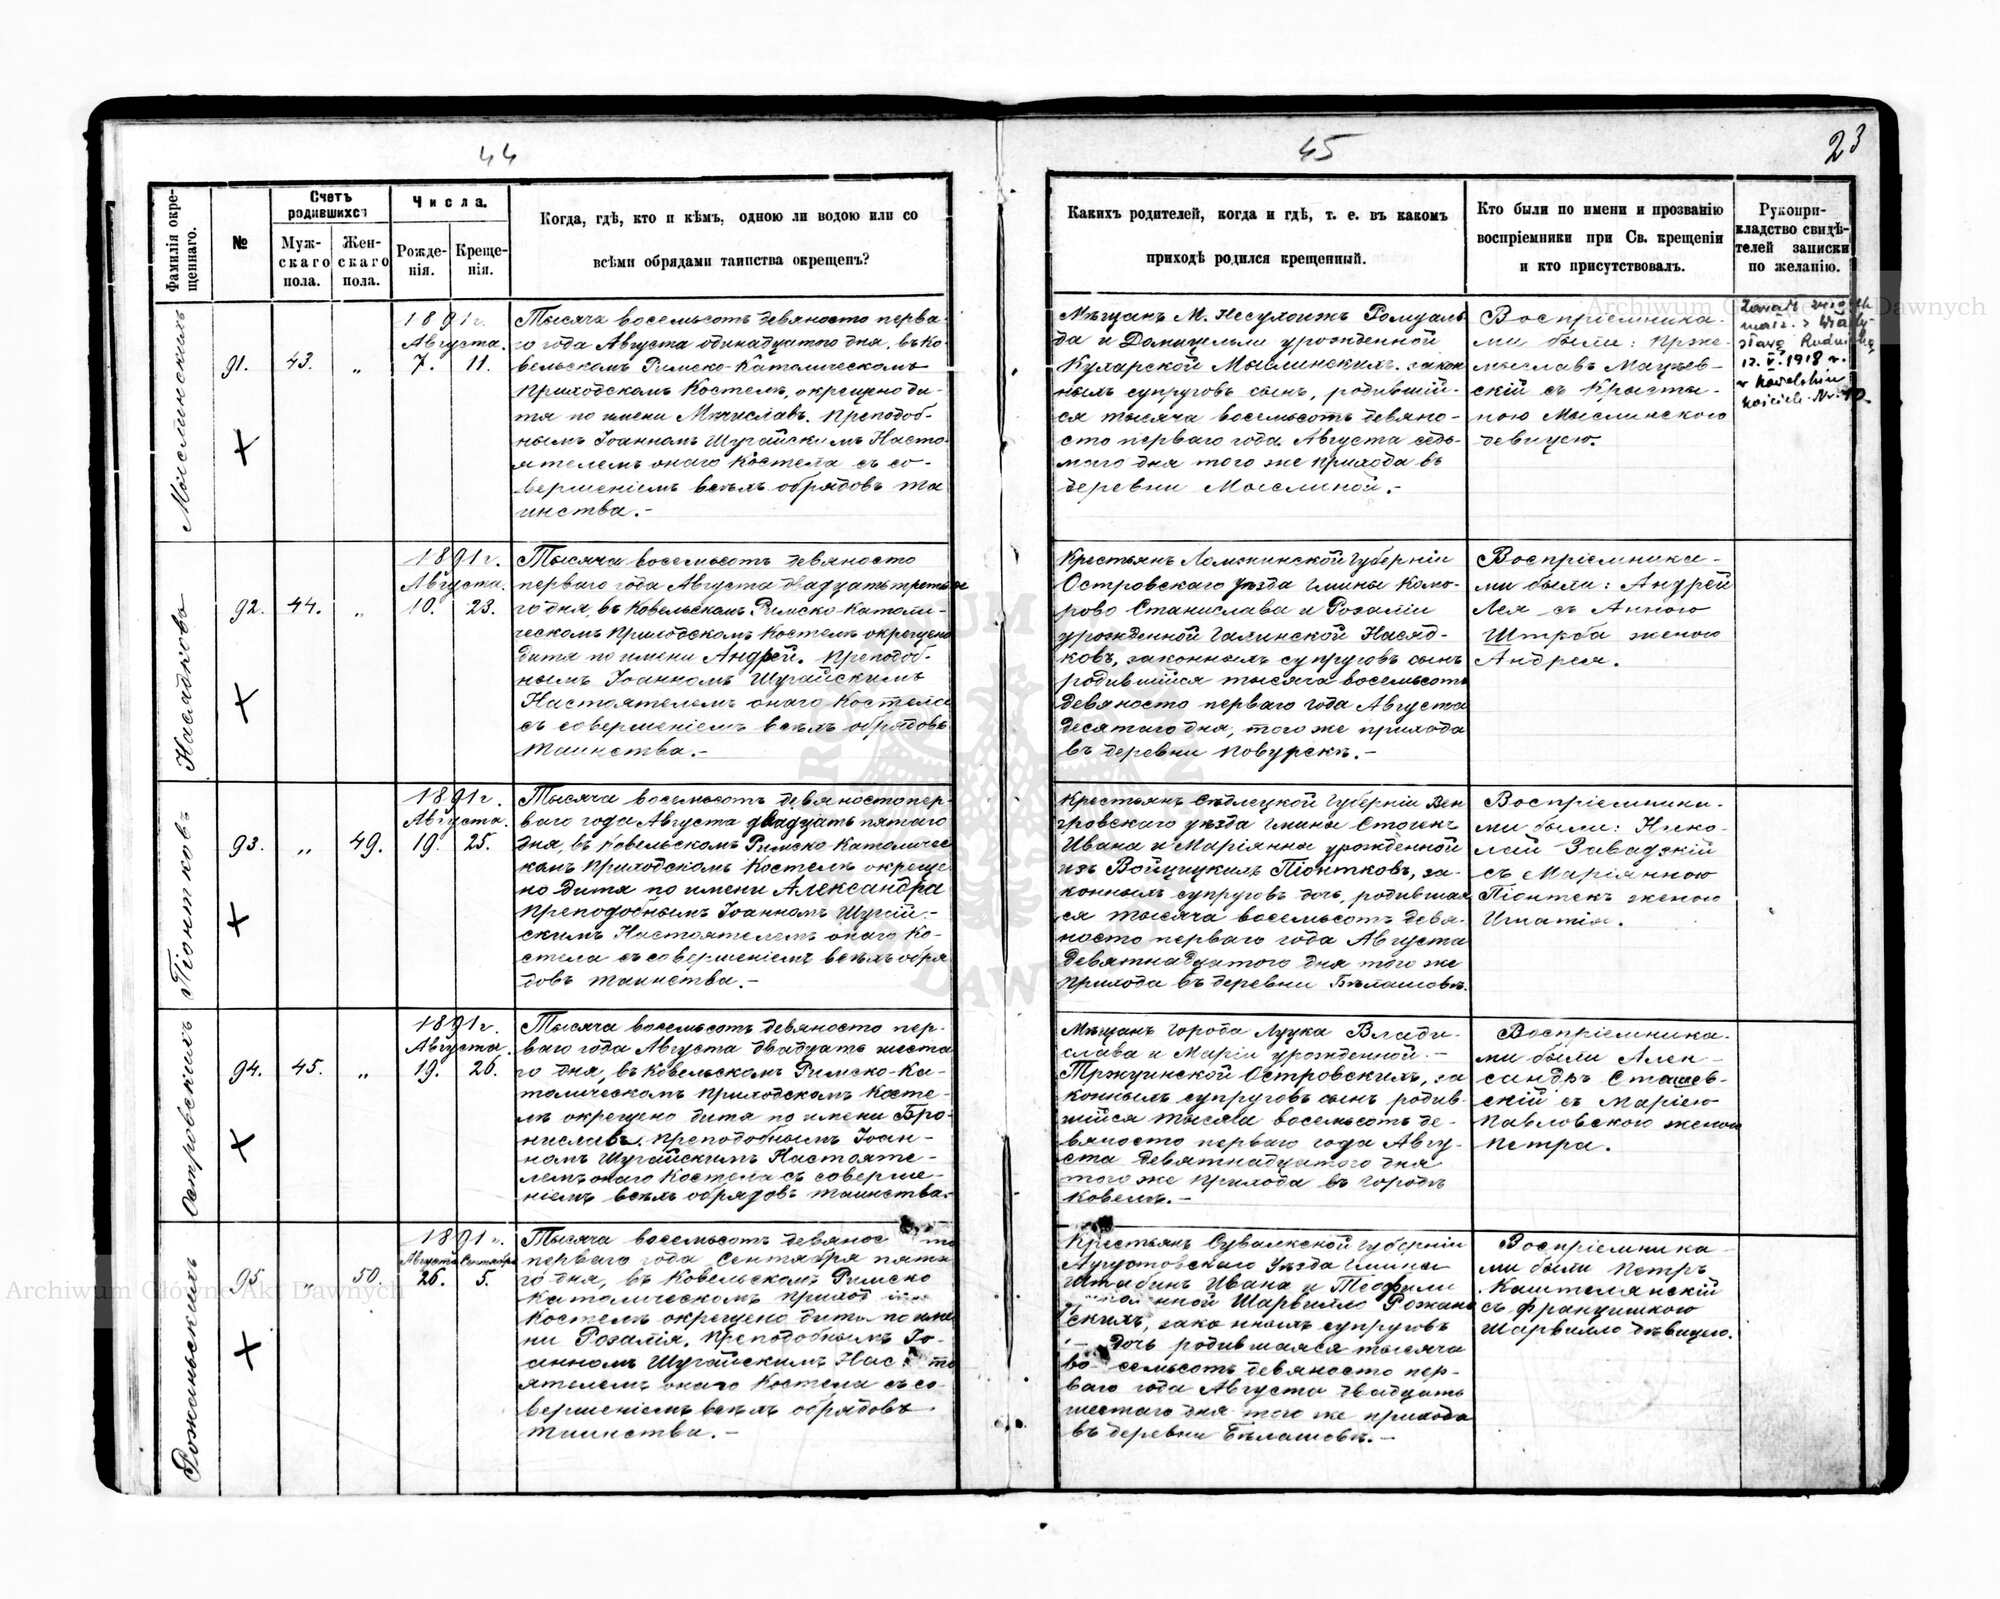 44
45
23
Фамилія окре-
щеннаго.
№
Счетъ
родившихся
Муж-
скаго
пола.
Жен-
скаго
пола.
Числа.
Рожде-
нія.
Креще-
нія.
Когда, гдѣ, кто и кѣмъ, одною ли водою или со
всѣми обрядами таинства окрещенъ?
Какихъ родителей, когда и гдѣ, т. е. въ какомъ
приходѣ родился крещенный.
Кто были по имени и прозванію
воспріемники при Св. крещеніи
и кто присутствовалъ.
Рукопри-
кладство свидѣ-
телей записки
по желанію.
Мыслинскихъ
91.
43.
„
1891 г.
Августа.
7. 11.
Тысяча восемьсотъ девяносто перва-
го года Августа одинадцатого дня, въ Ко-
вельскомъ Римско-Католическомъ
Приходскомъ Костелѣ, окрещено ди-
тя по имени Мечиславъ. Преподоб-
нымъ Іоанномъ Шугайскимъ Насто-
ятелемъ онаго Костела съ со-
вершеніемъ всѣхъ обрядовъ та
инства.-
Мѣщанъ М. Несухоижъ Ромуаль
да и Доницели урожденной
Кухарской Мыслинскихъ, закон
ныхъ супруговъ сынъ, родившій-
ся тысяча восемьсотъ девяно-
сто перваго года Августа седь-
мого дня того же прихода въ
деревни Мыслиной.-
Воспріемника-
ми были: Прже-
мыславъ Мацѣев-
скій съ Кристы-
ною Мыслинского
девицею.
12. V. 1918 r.
w kowelskim
kościele Nr. 10.
Насядковъ
92.
44.
„
1891 г.
Августа.
10. 23.
Тысяча восемьсотъ девяносто
перваго года Августа двадцать третья
го дня, въ Ковельскомъ Римско-Католи-
ческомъ Приходскомъ Костелѣ окрещено
дитя по имени Андрей. Преподоб-
нымъ Іоанномъ Шугайскимъ
Настоятелемъ онаго Костела
съ совершеніемъ всѣхъ обрядовъ
таинства.-
Крестьянъ Ломжинской Губерніи
Островскаго уѣзда гмины Комо-
рово Станислава и Розаліи
урожденной Галинской Насяд-
ковъ, законныхъ супруговъ сынъ
родившійся тысяча восемьсотъ
девяносто перваго года Августа
десятаго дня, того же прихода
въ деревни Повурскъ.-
Воспріемника-
ми были: Андрей
Лея съ Анною
Штрба женою
Андрея.
Піонтковъ
93.
„
49.
1891 г.
Августа.
19. 25.
Тысяча восемьсотъ девяносто пер-
ваго года Августа двадцать пятаго
дня, въ Ковельскомъ Римско-Католичес
комъ Приходскомъ Костелѣ окреще
но дитя по имени Александра
Преподобнымъ Іоанномъ Шугай-
скимъ Настоятелемъ онаго Ко-
стела съ совершеніемъ всѣхъ обря
довъ таинства.-
Крестьянъ Сѣдлецкой Губерніи Вен
гровскаго уѣзда гмины Сточенъ
Ивана и Маріянны урожденной
изъ Войцицкихъ Піонтковъ, за-
конныхъ супруговъ дочь, родившая
ся тысяча восемьсотъ девя-
носто перваго года Августа
девятнадцатого дня того же
прихода въ деревни Бѣлашовъ.
Воспріемника-
ми были: Нико-
лай Завадзкій
съ Маріянною
Піонтекъ женою
Игнатія.
Островскихъ
94.
45.
„
1891 г.
Августа.
19. 26.
Тысяча восемьсотъ девяносто пер-
ваго года Августа двадцать шеста
го дня, въ Ковельскомъ Римско-Ка-
толическомъ Приходскомъ Косте-
лѣ окрещено дитя по имени Бро-
ниславъ. Преподобнымъ Іоан-
номъ Шугайскимъ Настояте-
лемъ онаго Костела съ соверше-
ніемъ всѣхъ обрядовъ таинства.
Мѣщанъ города Луцка Влади-
слава и Маріи урожденной-
Тржцинской Островскихъ, за
конныхъ супруговъ сынъ родив-
шійся тысяча восемьсотъ де-
вяносто перваго года Авгу-
ста девятнадцатого дня
того же прихода въ городѣ
Ковелѣ.-
Воспріемника-
ми были Алек-
сандръ Сташев-
скій съ Маріею
Павловскою женою
Петра.
Рожаньскихъ
95.
„
50.
1891 г.
Августа Сентября
26. 5.
Тысяча восемьсотъ девянос то
перваго года Сентября пята
го дня, въ Ковельскомъ Римско
Католическомъ Приход
Костелѣ окрещено дитя по име
ни Розалія. Преподобнымъ Іо-
анномъ Шугайскимъ Нас то
ятелемъ онаго Костела съ со-
вершеніемъ всѣхъ обрядовъ
таинства.-
Крестьянъ Сувалкской Губерніи
Аугустовскаго Уѣзда Гмины
Штабинъ Ивана и Теофили
нной Шарвилло Рожань
скихъ, законныхъ супруговъ
дочь родившаяся тысяча
во семьсотъ девяносто пер-
ваго года Августа двадцать
шестаго дня того же прихода
въ деревни Бѣлашовъ.-
Воспріемника-
ми были Петръ
Каштелянскій
съ Францишкою
Шарвилло дѣвицею.
Archiwum Główne Akt Dawnych